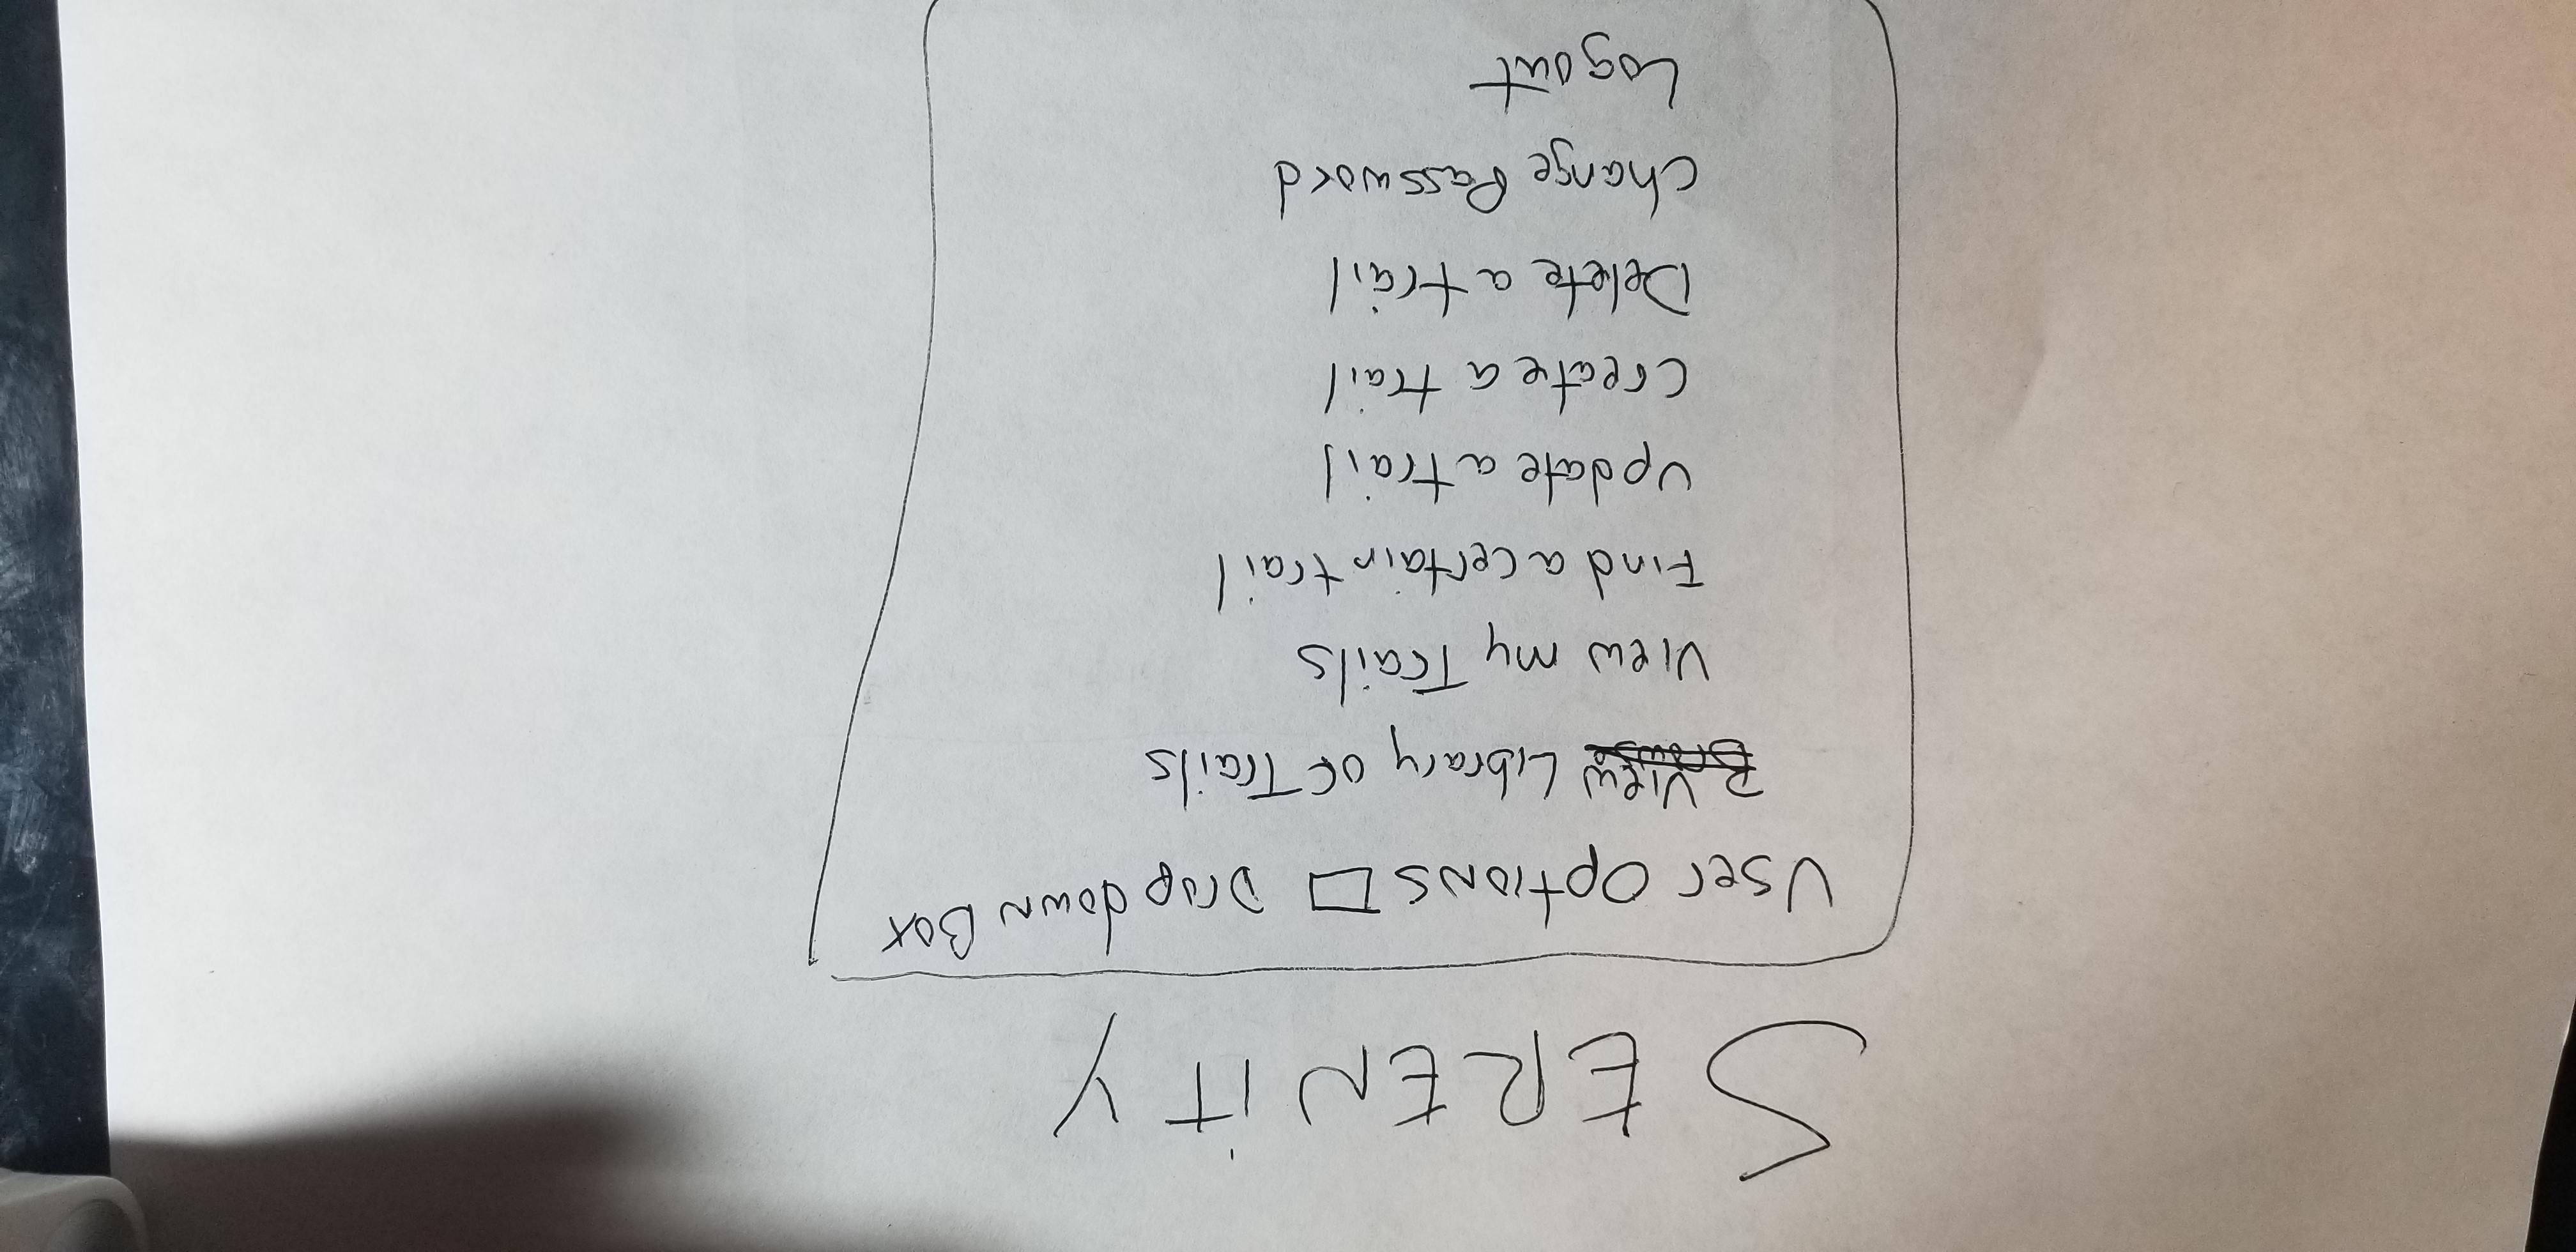 SERENiTY
User Options Dropdown Box
View Library of Trails
View my Trails
Find a certain trail
Update a trail
Create a trail
Delete a trail
Change Password
Logout